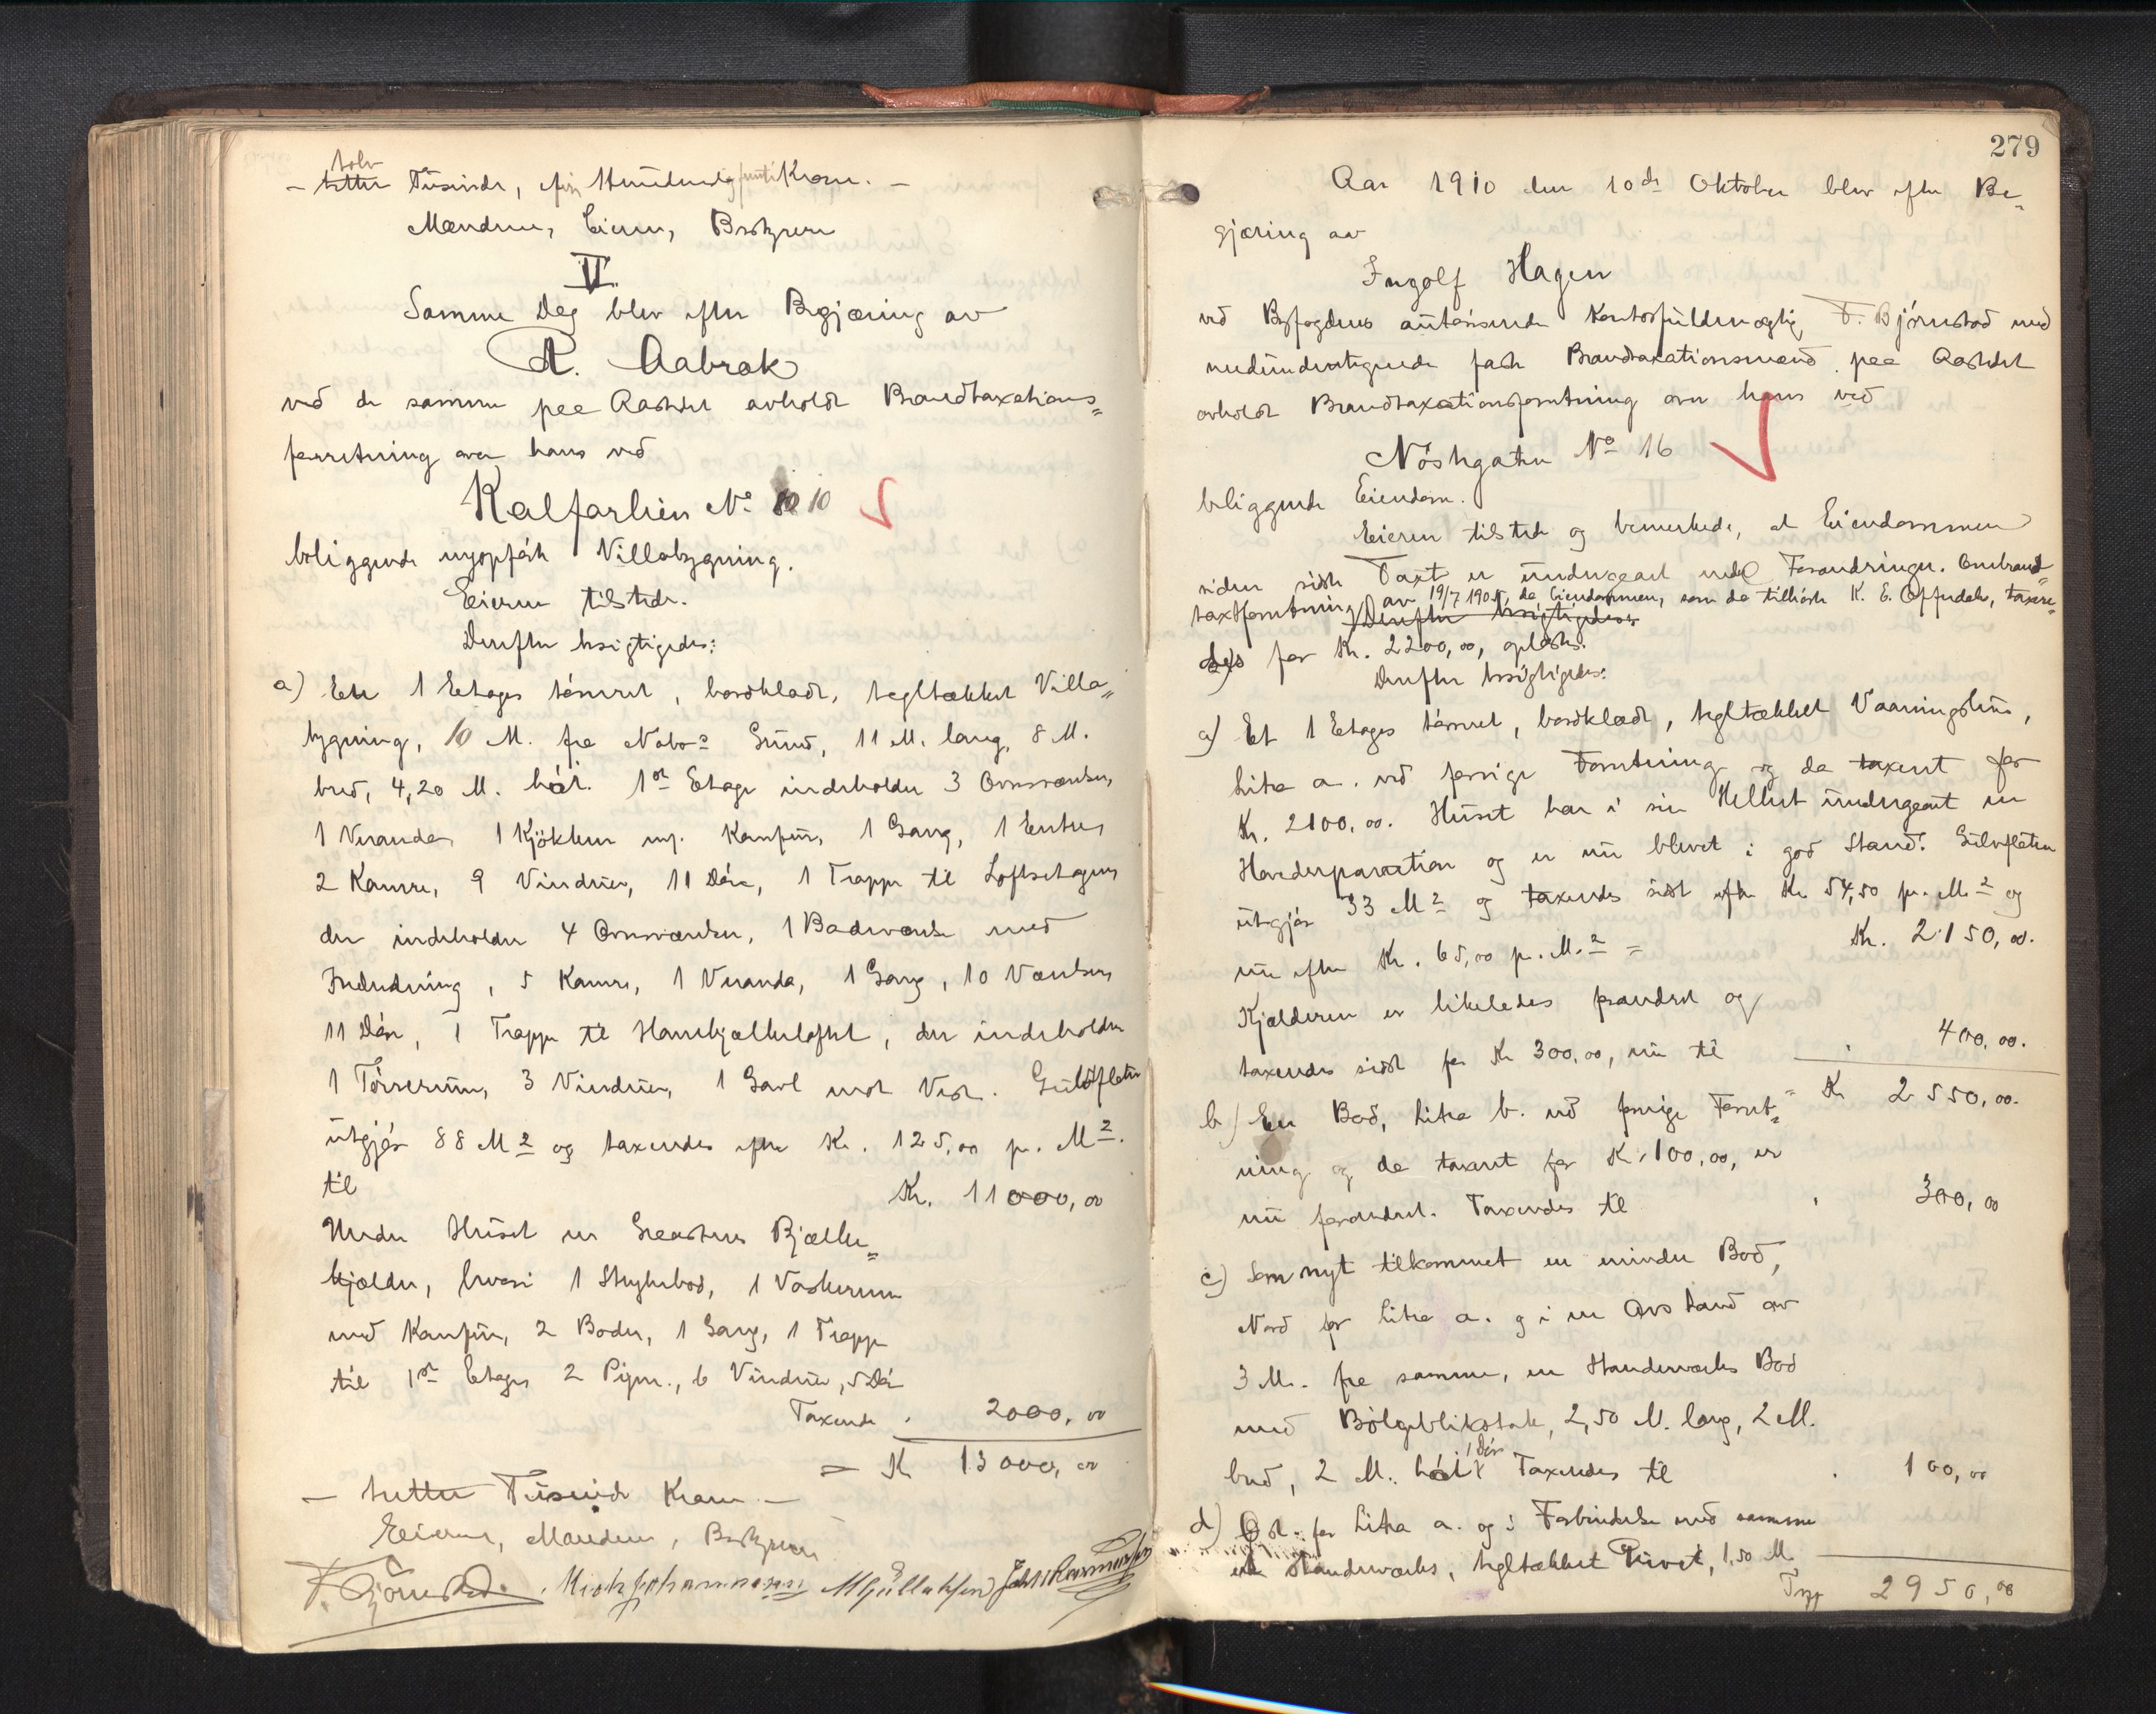 tolv
- tretten Tusinde, fir Hundrede og femti Kroner. -
Mændene, Eieren, Bestyreren
VI.
Samme Dag blev efter Begjæring av
A. Aabrek
ved de samme paa Aastedet avholdt Brandtaxations=
forretning over hans ved
Kalfarlien No 10
beliggende nyopført Villabygning.
Eieren tilstede.
Derefter besigtigedes:
a) En 1 Etages tømret, bordklædt, tegltækket Villa=
bygning, 10 M. fra Nabos Grund, 11 M. lang, 8 M.
bred, 4,20 M. høi. 1ste Etage indeholder 3 Ovnsværelser,
1 Veranda, 1 Kjøkken m/ Komfur, 1 Gang, 1 Entre,
2 Kamre, 9 Vinduer, 11 Døre, 1 Trappe til Loftsetagen,
der indeholder 4 Ovnsværelser, 1 Badeværelse med
Indredning, 5 Kamre, 1 Veranda, 1 Gang, 10 Vinduer
11 Døre, 1 Trappe til Hanebjælkeloftet, der indeholder
1 Tørrerum, 3 Vinduer, 1 Gavl mot Vest. Gulvflaten
utgjør 88 M2 og taxeredes efter Kr. 125,00 pr. M2.
til Kr. 11000,00
Under Huset en Graastens Bjælke=
kjælder, hvori 1 Strykebod, 1 Vaskerum
med Komfur, 2 Boder, 1 Gang, 1 Trappe
til 1ste Etage, 2 Piper, 6 Vinduer, 5 Døre
Taxeredes . 2000,00
= Kr 13000,00
- tretten Tusinde Kroner. -
Eieren, Mændene, Bestyreren
F. Bjørnstad. Mich Johannesen M Gullaksen Joh. Rasmussen
279
Aar 1910 den 10de Oktober blev efter Be=
gjæring av
Ingolf Hagen
ved Byfogdens autoriserede Kontorfuldmægtig F. Bjørnstad med
nedenundertegnede faste Brandtaxationsmænd paa Aastedet
avholdt Brandtaxationsforretning over hans ved
Nøstegaten No 16
beliggende Eiendom.
Eieren tilstede og bemerkede, at Eiendommen
siden sidste Taxt er undergaaet endel Forandringer. Ombrand=
taxtforretning av 19/7 1905, da Eiendommen, som da tilhørte K. E. Opfedal, taxere=
Derefter besigtigedes
des for Kr. 2200,00, oplæstes.
Derefter besigtigedes:
a) Et 1 Etages tømret, bordklædt, tegltækket Vaaningshus,
Litra a. ved forrige Forretning og da taxert for
Kr. 2100,00. Huset har i sin Helhet undergaaet en
Hovedreparation og er nu blevet i god Stand. Gulvflaten
utgjør 33 M2 og taxeredes sidst efter Kr 54,50 pr. M2 og
nu efter Kr. 65,00 p. M.2 = Kr. 2150,00.
Kjælderen er likeledes forandret og
taxeredes sidst for Kr 300,00, nu til . 400,00.
= Kr 2550,00.
b) En Bod, Litra b. ved forrige Forret=
ning og da taxert for Kr. 100,00, er
nu forandret. Taxeredes til . 300,00
c) Som nyt tilkommet en mindre Bod,
Nord for Litra a. og i en Avstand av
3 M. fra samme, en Standerværks Bod
med Bølgebliktak, 2,50 M. lang, 2 M.
1 Dør
bred, 2 M. høi. Taxeredes til . 100,00
d) Øst for Litra a. og i Forbindelse med samme
et Standerværks, tegltækket Privet, 1,50 M.
Trsp 2950,00